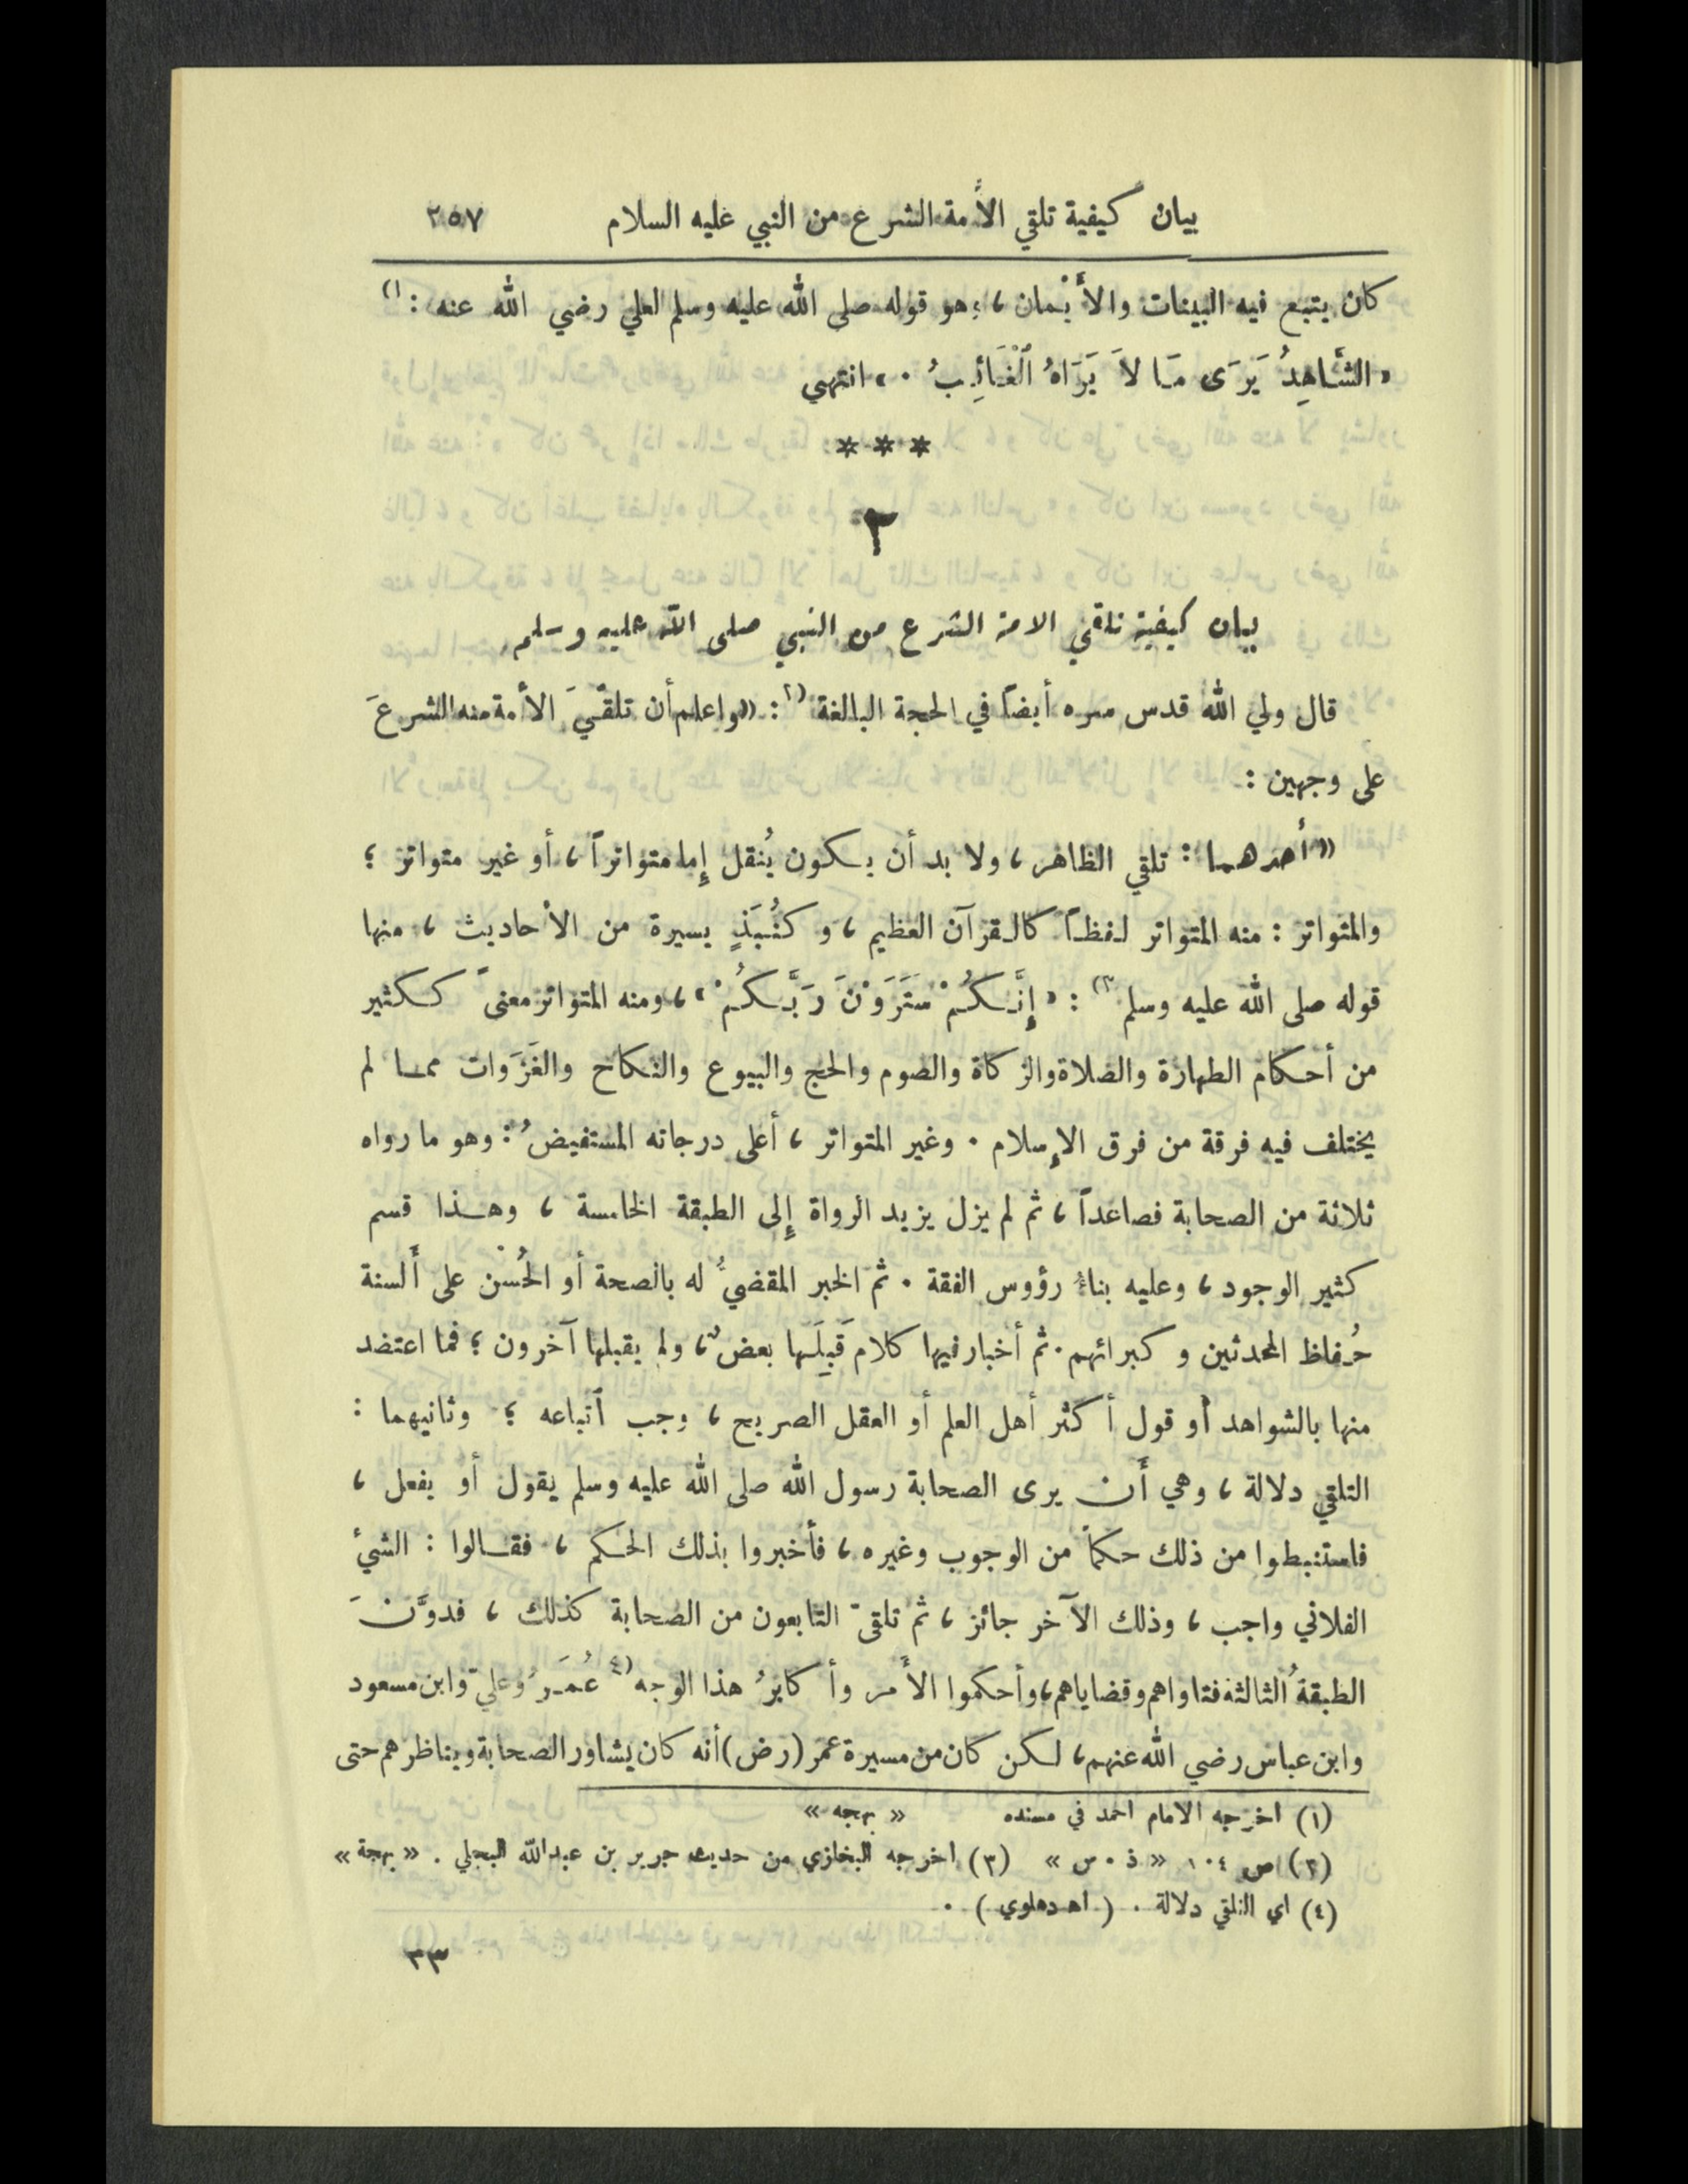 بيان كيفية تلقي الأمة الشرع من النبي عليه السلام ٢٥٧
كان يتبع فيه البينات والأَيْمان ، وهو قوله صلى الله عليه وسلم لعلي رضي الله عنه : (١
« الشَّاهِدُ يَرَى مَا لاَ يَرَاهُ ٱلْغَائِبُ . » انتهى
* * *
٢
بيان كيفية تلقي الامة الشرع من النبي صلى الله عليه وسلم
قال ولي الله قدس سره أيضاً في الحجة البالغة (٢ : « واعلم أن تلقّيَ الأمة منه الشرعَ
على وجهين :
« أحدهما : تلقي الظاهر ، ولا بد أن يكون يُنقل إِما متواتراً ، أو غير متواتر ؛
والمتواتر : منه المتواتر لفظاً كالقرآن العظيم ، و كنُبَذٍ يسيرة من الأحاديث ، منها
قوله صلى الله عليه وسلم (٣ : « إِنَّكُمْ سَتَرَوْنَ رَبَّكُمْ » ، ومنه المتواتر معنىً ككثير
من أحكام الطهارة والصلاة والزكاة والصوم والحج والبيوع والنكاح والغَزَوات مما لم
يختلف فيه فرقة من فرق الإِسلام . وغير المتواتر ، أعلى درجاته المستفيضُ : وهو ما رواه
ثلاثة من الصحابة فصاعداً ، ثم لم يزل يزيد الرواة إِلى الطبقة الخامسة ، وهذا قسم
كثير الوجود ، وعليه بناءُ رؤوس الفقة . ثم الخبر المقضيُّ له بالصحة أو الحُسْن على أَلسنة
حُفاظ المحدثين و كبرائهم . ثم أخبار فيها كلام قَبِلَها بعضٌ ، ولم يقبلها آخرون ؛ فما اعتضد
منها بالشواهد أو قول أكثر أهل العلم أو العقل الصريح ، وجب ٱتباعه ؛ وثانيهما :
التلقي دلالة ، وهي أَن يرى الصحابة رسول الله صلى الله عليه وسلم يقول أو يفعل ،
فاستنبطوا من ذلك حكماً من الوجوب وغيره ، فأخبروا بذلك الحكم ، فقالوا : الشيءُ
الفلاني واجب ، وذلك الآخر جائز ، ثم تلقىّ التابعون من الصحابة كذلك ، فدوَّنَ
الطبقةُ الثالثة فتاواهم وقضاياهم ، وأحكموا الأَمر وأكابرُ هذا الوجه (٤ عُمَرُ وعليّ وابن مسعود
وابن عباس رضي الله عنهم ، لكن كان من سيرة عمر (رض) أنه كان يشاور الصحابة ويناظرهم حتى
(١) اخرجه الامام احمد في مسنده « بهجه »
(٢) ص ١٠٤ « ذ . س » (٣) اخرجه البخاري من حديث جرير بن عبدالله البجلي . « بهجة »
(٤) اي التلقي دلالة . ( اه دهلوي ) .
٣٣